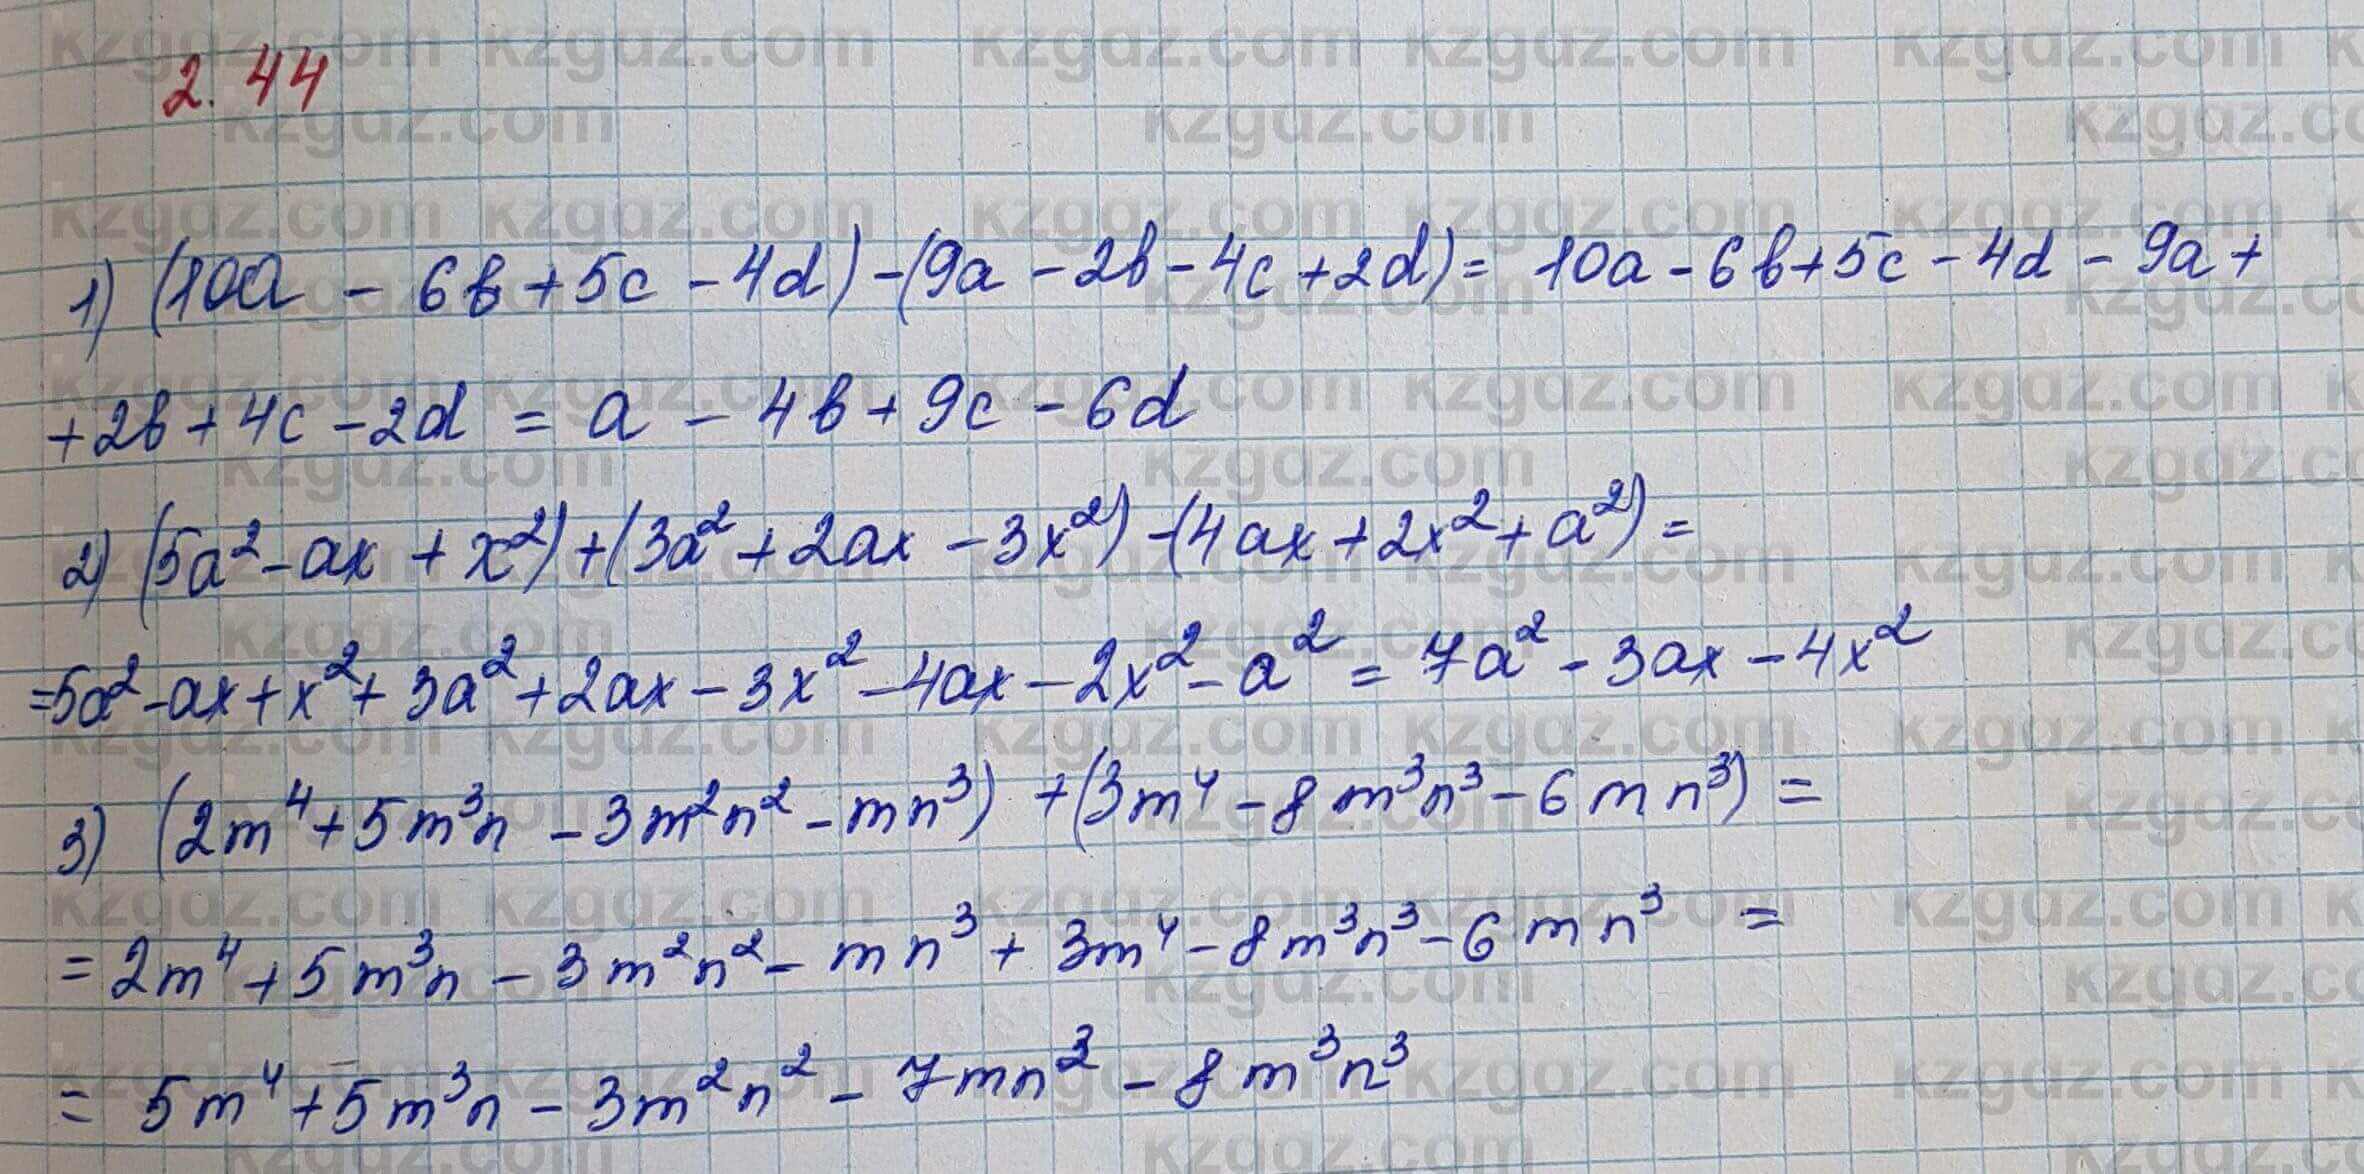 2.44
1) (10a - 6b + 5c - 4d) - (9a - 2b - 4c + 2d) = 10a - 6b + 5c - 4d - 9a +
+ 2b + 4c - 2d = a - 4b + 9c - 6d
2) (5a² - ax + x²) + (3a² + 2ax - 3x²) - (4ax + 2x² + a²) =
= 5a² - ax + x² + 3a² + 2ax - 3x² - 4ax - 2x² - a² = 7a² - 3ax - 4x²
3) (2m⁴ + 5m³n - 3m²n² - mn³) + (3m⁴ - 8m³n³ - 6mn³) =
= 2m⁴ + 5m³n - 3m²n² - mn³ + 3m⁴ - 8m³n³ - 6mn³ =
= 5m⁴ + 5m³n - 3m²n² - 7mn³ - 8m³n³
kzgdz.com